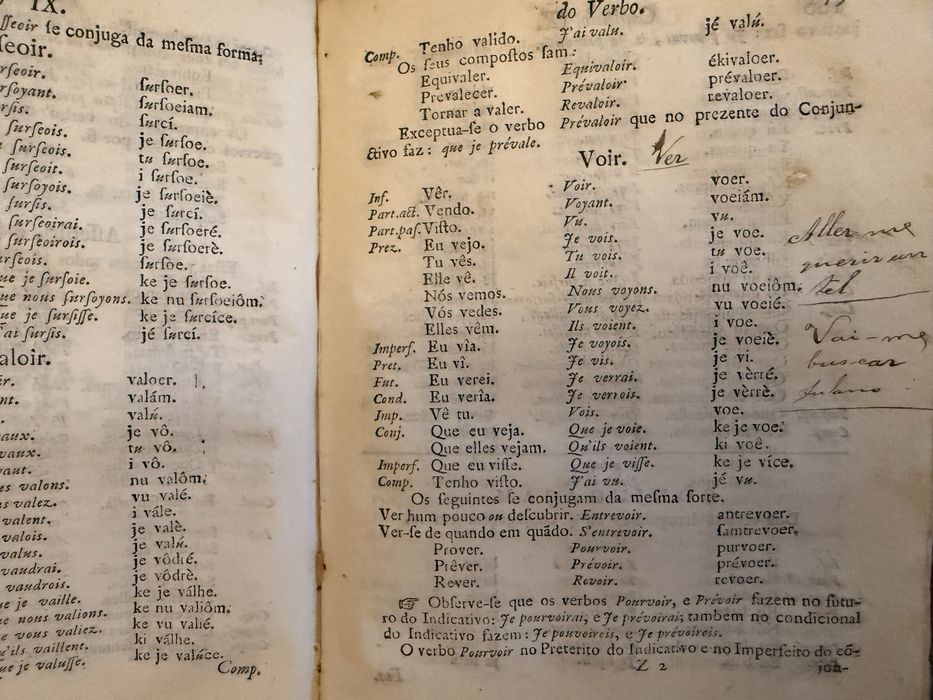 IX.
ſſeoir ſe conjuga da meſma forma:
ſeoir.
rſeoir. ſurſoer.
rſoyant. ſurſoeiam.
rſis. ſurcí.
ſurſeois. je ſurſoe.
ſurſeois. tu ſurſoe.
ſurſeoit. i ſurſoe.
ſurſoyois. je ſurſoeiè.
ſurſis. je ſurcí.
ſurſeoirai. je ſurſoeré.
ſurſeoirois. je ſurſoerè.
rſeois. ſurſoe.
ue je ſurſoie. ke je ſurſoe.
ue nous ſurſoyons. ke nu ſurſoeiôm.
ue je ſurſiſſe. ke je ſurcíce.
'ai ſurſis. jé ſurcí.
aloir.
ir. valoer.
nt. valám.
valú.
aux. je vô.
vaux. tu vô.
vaut. i vô.
us valons. nu valôm.
valez. vu valé.
valent. i vále.
valois. je valè.
valus. je valú.
vaudrai. je vôdré.
vaudrois. je vôdrè.
ue je vaille. ke je válhe.
ue nous valions. ke nu valiôm.
e vous valiez. ke vu valié.
u'ils vaillent. ki válhe.
ue je valuſſe. ke je valúce.
Comp.
do Verbo.
Comp. Tenho valido. J'ai valu. jé valú.
Os ſeus compoſtos ſam:
Equivaler. Equivaloir. ékivaloer.
Prevalecer. Prévaloir. prévaloer.
Tornar a valer. Revaloir. revaloer.
Exceptua-ſe o verbo Prévaloir que no prezente do Conjun-
ctivo faz: que je prévale.
Voir. Ver
Inf. Vêr. Voir. voer.
Part.act. Vendo. Voyant. voeiám.
Part.paſ. Viſto. Vu. vu.
Prez. Eu vejo. Je vois. je voe.
Tu vês. Tu vois. tu voe.
Elle vê. Il voit. i voê.
Nós vemos. Nous voyons. nu voeiôm.
Vós vedes. Vous voyez. vu voeié.
Elles vêm. Ils voient. i voe.
Imperf. Eu vîa. Je voyois. je voeiè.
Pret. Eu vî. Je vis. je vi.
Fut. Eu verei. Je verrai. je vèrré.
Cond. Eu verîa. Je verrois. je vèrrè.
Imp. Vê tu. Vois. voe.
Conj. Que eu veja. Que je voie. ke je voe.
Que elles vejam. Qu'ils voient. ki voê.
Imperf. Que eu viſſe. Que je viſſe. ke je více.
Comp. Tenho viſto. J'ai vu. jé vu.
Os ſeguintes ſe conjugam da meſma ſorte.
Ver hum pouco ou deſcubrir. Entrevoir. antrevoer.
Ver-ſe de quando em quãdo. S'entrevoir. ſamtrevoer.
Prover. Pourvoir. purvoer.
Prêver. Prévoir. prévoer.
Rever. Revoir. revoer.
☞ Obſerve-ſe que os verbos Pourvoir, e Prévoir fazem no futu-
ro do Indicativo: Je pourvoirai, e Je prévoirai; tambem no condicional
do Indicativo fazem: Je pouvoireis, e Je prévoirois.
O verbo Pourvoir no Preterito do Indicativo e no Imperfeito do cõ-
Z 2 jon-
Aller me
querir un
tel
Vai-me
buscar
fulano